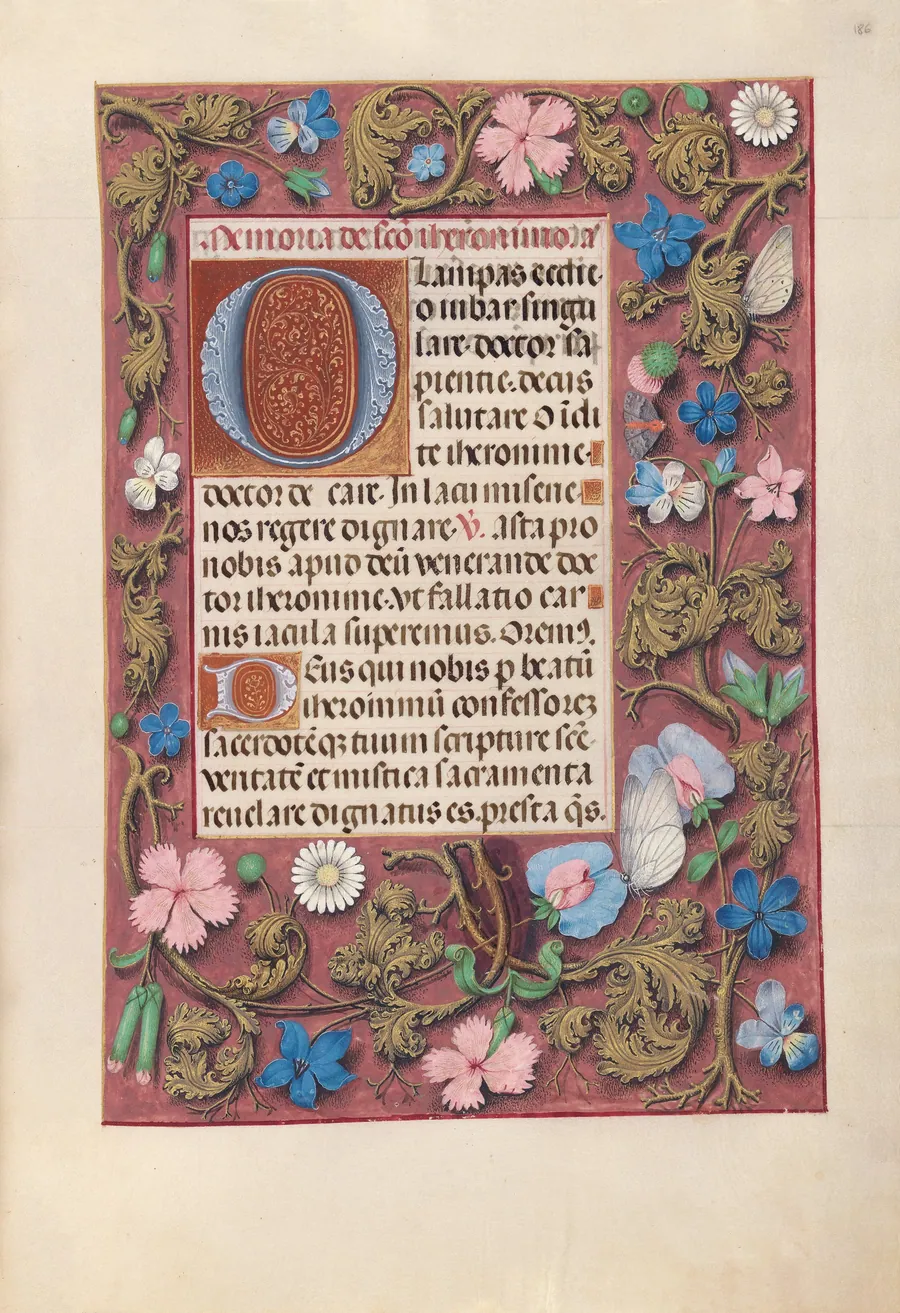 186
Memoria de scō iheronimo. ā
O Lampas ecclie.
O iubar singu
lare. doctor sa
pientie. decus
salutare O īcli
te iheronime.
doctor de care. In lacu miserie.
nos regere dignare. V̇. Asta pro
nobis apud deū venerande doc
tor iheronime. Vt fallatio car
nis iacula superemus. Oremꝰ.
Deus qui nobis p beatū
iheronimū confessorez
sacerdotēqz tuum scripture scē
veritatē et mistica sacramenta
reuelare dignatus es. presta q̄s.